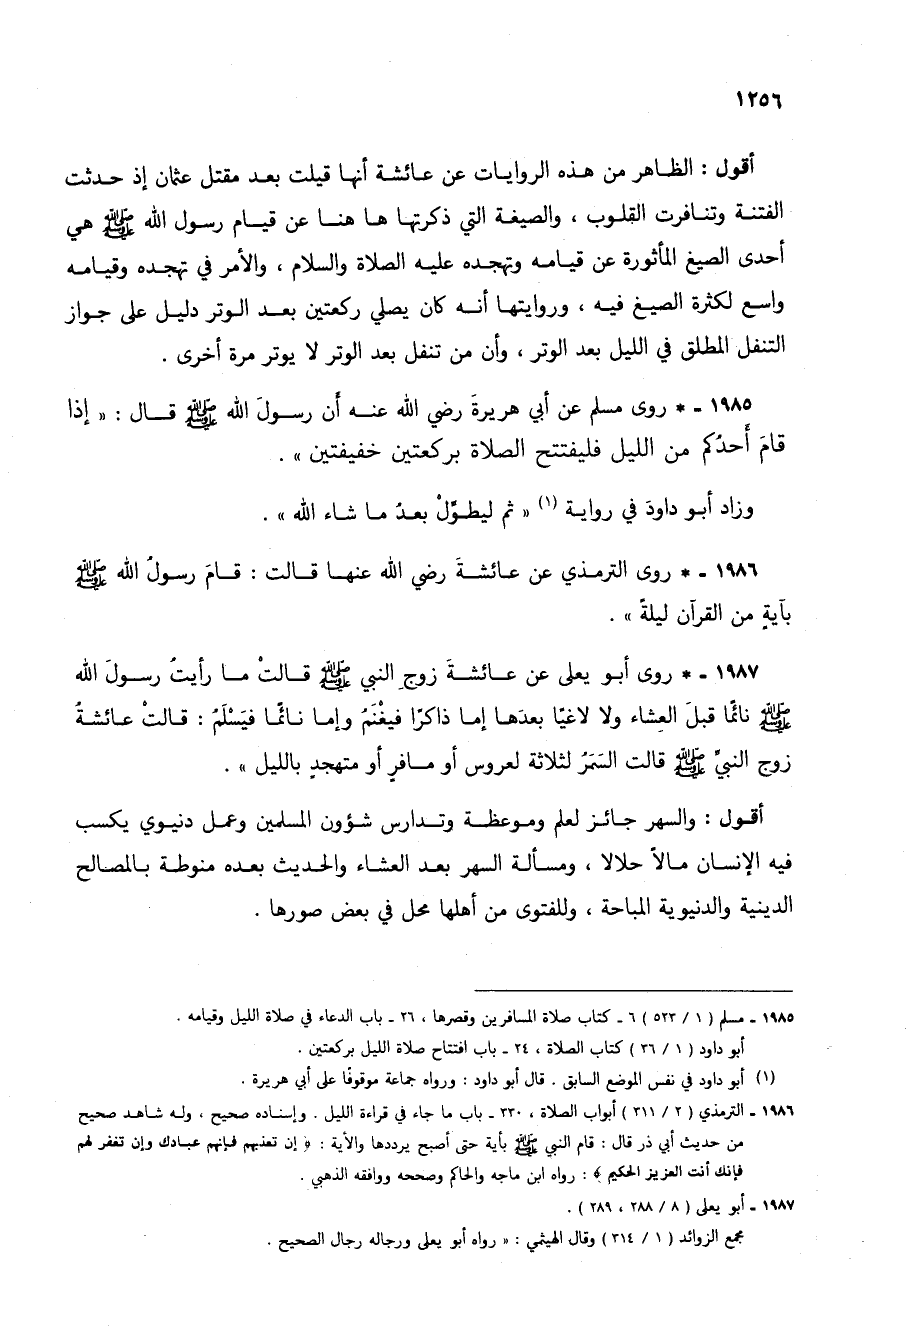 ١٢٥٦
أقول : الظاهر من هذه الروايات عن عائشة أنها قيلت بعد مقتل عثمان إذ حدثت
الفتنة وتنافرت القلوب ، والصيغة التي ذكرتها ها هنا عن قيام رسول الله ﷺ هي
أحدى الصيغ المأثورة عن قيامه وتهجده عليه الصلاة والسلام ، والأمر في تهجده وقيامه
واسع لكثرة الصيغ فيه ، وروايتها أنه كان يصلي ركعتين بعد الوتر دليل على جواز
التنفل المطلق في الليل بعد الوتر ، وأن من تنفل بعد الوتر لا يوتر مرة أخرى .
١٩٨٥ - * روى مسلم عن أبي هريرةَ رضي الله عنه أن رسولَ الله ﷺ قال : « إذا
قامَ أَحدُكم من الليل فليفتتح الصلاة بركعتين خفيفتين » .
وزاد أبو داودَ في رواية (١) « ثم ليطوِّلْ بعدُ ما شاء الله » .
١٩٨٦ - * روى الترمذي عن عائشةَ رضي الله عنها قالت : قامَ رسولُ الله ﷺ
بآيةٍ من القرآن ليلةً » .
١٩٨٧ - * روى أبو يعلى عن عائشةَ زوجِ النبي ﷺ قالتْ ما رأيتُ رسولَ الله
ﷺ نائمًا قبلَ العشاء ولا لاغيًا بعدَها إما ذاكرًا فيغْنَمُ وإما نائمًا فيَسْلَمُ : قالتْ عائشةُ
زوج النبيِّ ﷺ قالت السَمَرُ لثلاثة لعروس أو مسافرٍ أو متهجدٍ بالليل » .
أقول : والسهر جائز لعلم وموعظة وتدارس شؤون المسلمين وعمل دنيوي يكسب
فيه الإنسان مالاً حلالا ، ومسألة السهر بعد العشاء والحديث بعده منوطة بالمصالح
الدينية والدنيوية المباحة ، وللفتوى من أهلها محل في بعض صورها .
١٩٨٥ - مسلم ( ١ / ٥٢٣ ) ٦ - كتاب صلاة المسافرين وقصرها ، ٢٦ - باب الدعاء في صلاة الليل وقيامه .
أبو داود ( ١ / ٣٦ ) كتاب الصلاة ، ٢٤ - باب افتتاح صلاة الليل بركعتين .
(١) أبو داود في نفس الموضع السابق . قال أبو داود : ورواه جماعة موقوفًا على أبي هريرة .
١٩٨٦ - الترمذي ( ٢ / ٣١١ ) أبواب الصلاة ، ٣٣٠ - باب ما جاء في قراءة الليل . وإسناده صحيح ، وله شاهد صحيح
من حديث أبي ذر قال : قام النبي ﷺ بآية حتى أصبح يرددها والأية : ﴿ إن تعذبهم فإنهم عبادك وإن تغفر لهم
فإنك أنت العزيز الحكيم ﴾ : رواه ابن ماجه والحاكم وصححه ووافقه الذهبي .
١٩٨٧ - أبو يعلى ( ٨ / ٢٨٨ ، ٢٨٩ ) .
مجمع الزوائد ( ١ / ٣١٤ ) وقال الهيثمي : « رواه أبو يعلى ورجاله رجال الصحيح .